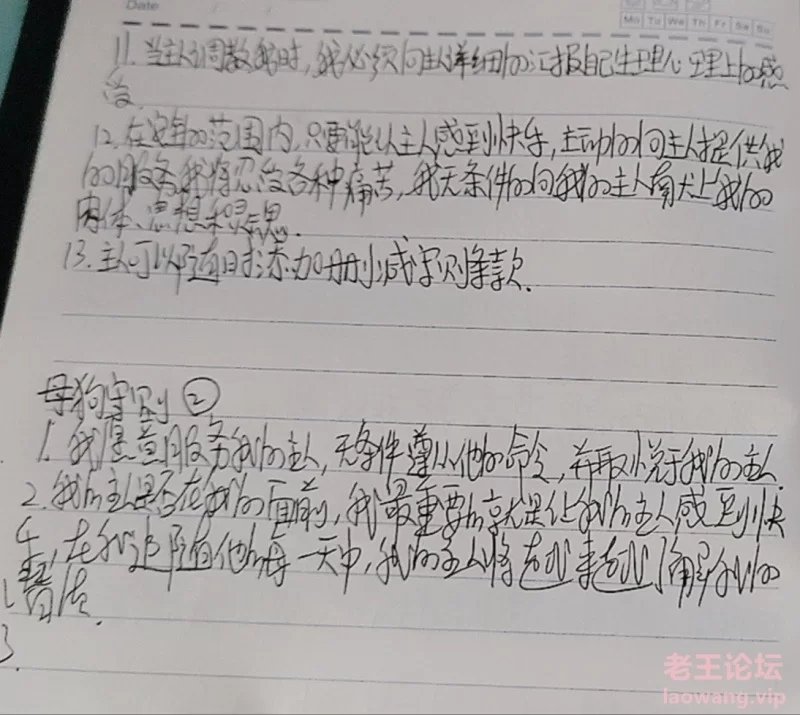 Date
Mo Tu We Th Fr Sa Su
11. 当主人调教我时, 我必须向主人详细的汇报自己生理心理上的感
受.
12. 在安全的范围内, 只要能让主人感到快乐, 主动的向主人提供我
的服务我将忍受各种痛苦, 我无条件的向我的主人献上我的
肉体、思想和灵魂.
13. 主人可以随时添加册小减守则条款.
母狗守则 ②
1. 我愿意服务我的主人, 无条件遵从他的命令, 并取悦于我的主人.
2. 我的主人是否在我的面前, 我最重要的就是让我的主人感到快
乐, 在我追随他的每一天中, 我的主人将越来越了解我的
3.
老王论坛
laowang.vip